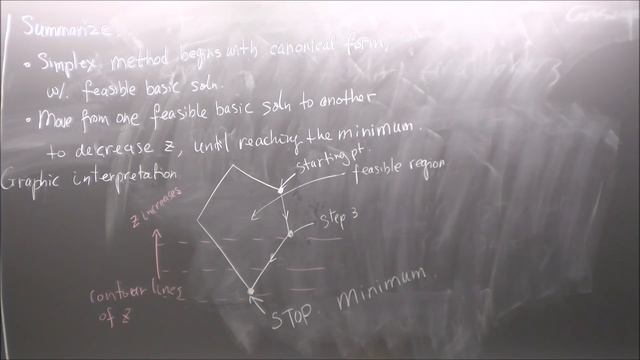 Summarize.
• Simplex method begins with canonical form,
w/. feasible basic soln.
• Move from one feasible basic soln to another
to decrease z, until reaching the minimum.
Graphic interpretation.
starting pt.
feasible region
z increases
step 3
contour lines
of z
STOP. minimum.